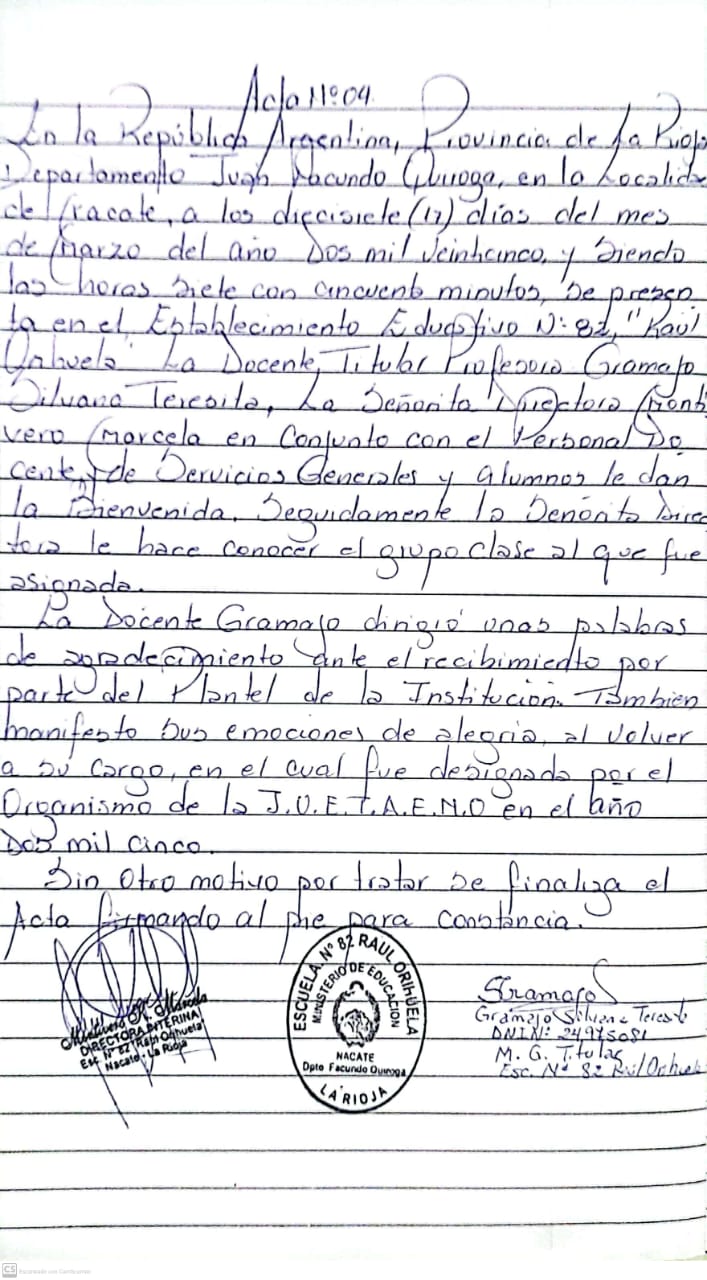 Acta Nº 04
En la República Argentina, Provincia de La Rioja
Departamento Juan Facundo Quiroga, en la Localidad
de Nacate, a los diecisiete (17) días del mes
de Marzo del año Dos mil Veinticinco, y Siendo
las horas Siete con cincuent minutos, Se presen
ta en el Establecimiento Educativo Nº 82, "Raúl
Orihuela" La Docente, Titular Profesora Gramajo
Silvana Teresita, La Señorita Directora Monti
vero Marcela en Conjunto con el Personal Do
cente, y de Servicios Generales y Alumnos le dan
la Bienvenida. Seguidamente la Señorita Direc
tora le hace conocer el grupo clase al que fue
asignada.
La Docente Gramajo dirigió unas palabras
de agradecimiento ante el recibimiento por
parte del Plantel de la Institución. También
manifesto sus emociones de alegria, al volver
a su Cargo, en el cual fue designada por el
Organismo de la J.U.E.T.A.E.N.O en el año
Dos mil cinco.
Sin Otro motivo por tratar Se finaliza el
Acta firmando al pie para constancia.
Montivero Marcela
DIRECTORA INTERINA
Esc. Nº 82 "Raúl Orihuela"
Nacate - La Rioja
ESCUELA Nº 82 RAUL ORIHUELA
MINISTERIO DE EDUCACION
NACATE
Dpto Facundo Quiroga
LA RIOJA
SGramajo
Gramajo Silvana Teresita
DNI Nº: 24975081
M. G. Titular
Esc. Nº 82 Raúl Orihuela
CS Escaneado con CamScanner